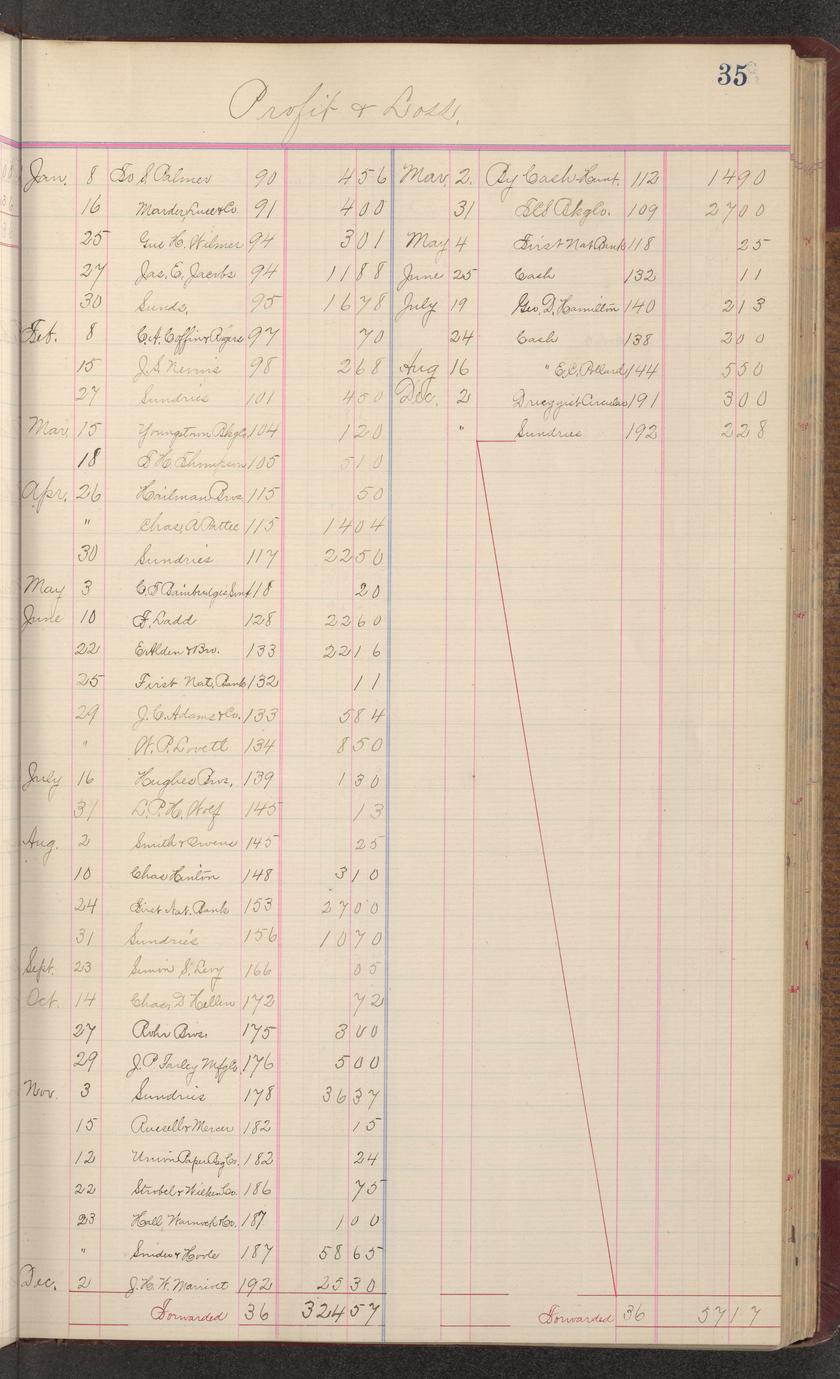 35
Profit & Loss.
Jan. 8 To S Palmer 90 4 56
16 Marder, Luce & Co. 91 4 00
25 Gus H. Wilmer 94 3 01
27 Jas. E. Jacobs 94 11 88
30 Sunds. 95 16 78
Feb. 8 C.A. Coffin & Rogers 97 70
15 J.S. Nevins 98 2 68
27 Sundries 101 4 50
Mar. 15 Youngstown Bkg Co 104 1 20
18 E H Thompson 105 5 10
Apr. 26 Hailman Bros 115 50
" Chas, A Pattee 115 14 04
30 Sundries 117 22 50
May 3 C.T. Bainbridges 118 20
June 10 F. Ladd 128 22 60
22 E Alden & Bro. 133 22 16
25 First Nat. Bank 132 11
29 J.C. Adams & Co. 133 5 84
" W.P. Lovett 134 8 50
July 16 Hughes Bros. 139 1 30
31 L.P.H. Wolf 145 13
Aug. 2 Smith & Owens 145 25
10 Chas Hinton 148 3 10
24 First Nat. Bank 153 27 00
31 Sundries 156 10 70
Sept. 23 Simon S. Levy 166 05
Oct. 14 Chas, D Hellen 172 72
27 Rohr Bros. 175 3 00
29 J.P. Farley Mfg Co. 176 5 00
Nov. 3 Sundries 178 36 37
15 Russell & Mercer 182 15
12 Union Paper Bag Co. 182 24
22 Strobel & Wilken Co. 186 75
23 Hall, Warnock & Co. 187 1 00
" Snider & Hoole 187 58 65
Dec. 2 J.H.W. Marriott 192 25 30
Forwarded 36 324 57
Mar. 2. By Cash 112 14 90
31 Bkg Co. 109 27 00
May 4 First Nat Bank 118 25
June 25 Cash 132 11
July 19 Geo. D. Hamilton 140 2 13
24 Cash 138 2 00
Aug 16 " E.C. Pollard 144 5 50
Dec. 2 Druggist Circular 191 3 00
" Sundries 192 2 28
Forwarded 36 57 17